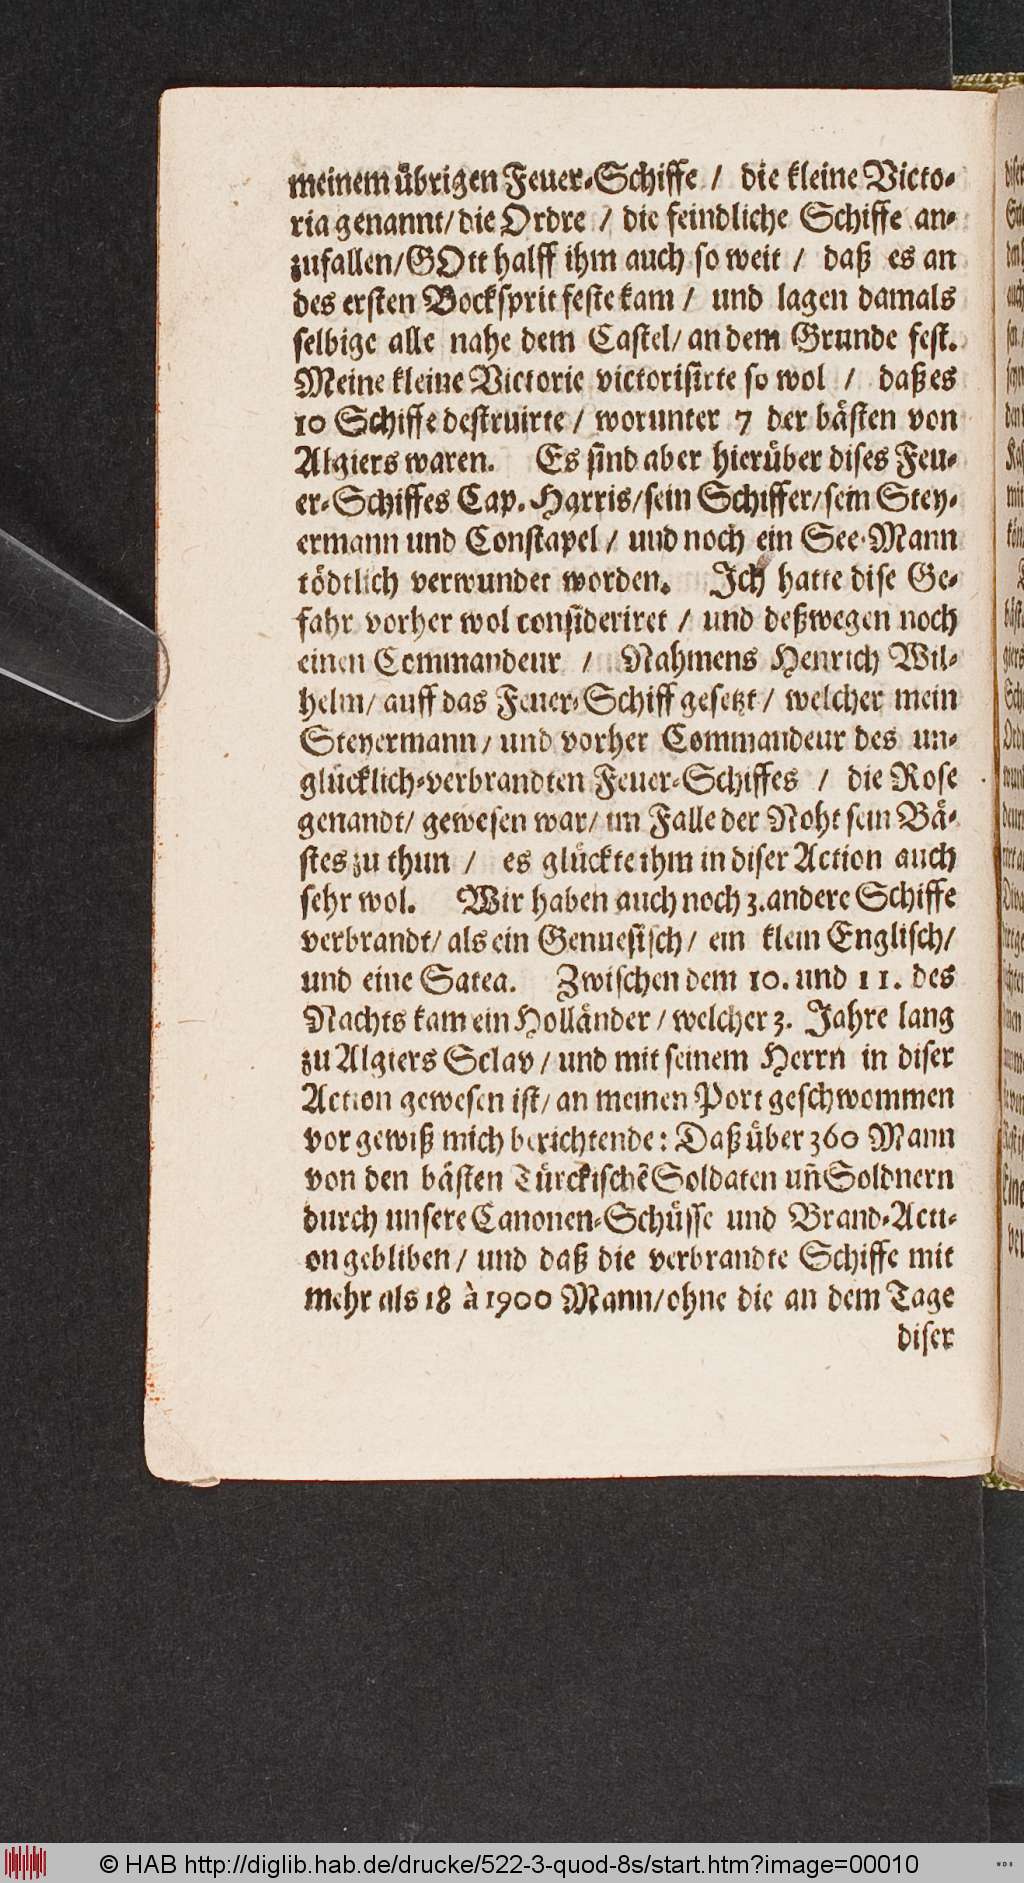 meinem übrigen Feuer-Schiffe / die kleine Victo-
ria genannt/ die Ordre / die feindliche Schiffe an-
zufallen/ GOtt halff ihm auch so weit / daß es an
des ersten Bocksprit feste kam / und lagen damals
selbige alle nahe dem Castel/ an dem Grunde fest.
Meine kleine Victorie victorisirte so wol / daß es
10 Schiffe destruirte / worunter 7 der bästen von
Algiers waren. Es sind aber hierüber dises Feu-
er-Schiffes Cap. Harris/ sein Schiffer/ sein Stey-
ermann und Constapel / und noch ein See-Mann
tödtlich verwundet worden. Ich hatte dise Ge-
fahr vorher wol consideriret / und deßwegen noch
einen Commandeur / Nahmens Henrich Wil-
helm/ auff das Feuer-Schiff gesetzt / welcher mein
Steyermann / und vorher Commandeur des un-
glücklich-verbrandten Feuer-Schiffes / die Rose
genandt/ gewesen war/ im Falle der Noht sein Bä-
stes zu thun / es glückte ihm in diser Action auch
sehr wol. Wir haben auch noch 3. andere Schiffe
verbrandt/ als ein Genuesisch / ein klein Englisch/
und eine Satea. Zwischen dem 10. und 11. des
Nachts kam ein Holländer / welcher 3. Jahre lang
zu Algiers Sclav / und mit seinem Herrn in diser
Action gewesen ist/ an meinen Port geschwommen
vor gewiß mich berichtende: Daß über 360 Mann
von den bästen Türckischẽ Soldaten uñ Soldnern
durch unsere Canonen-Schüsse und Brand-Acti-
on gebliben / und daß die verbrandte Schiffe mit
mehr als 18 à 1900 Mann/ ohne die an dem Tage
diser
© HAB http://diglib.hab.de/drucke/522-3-quod-8s/start.htm?image=00010